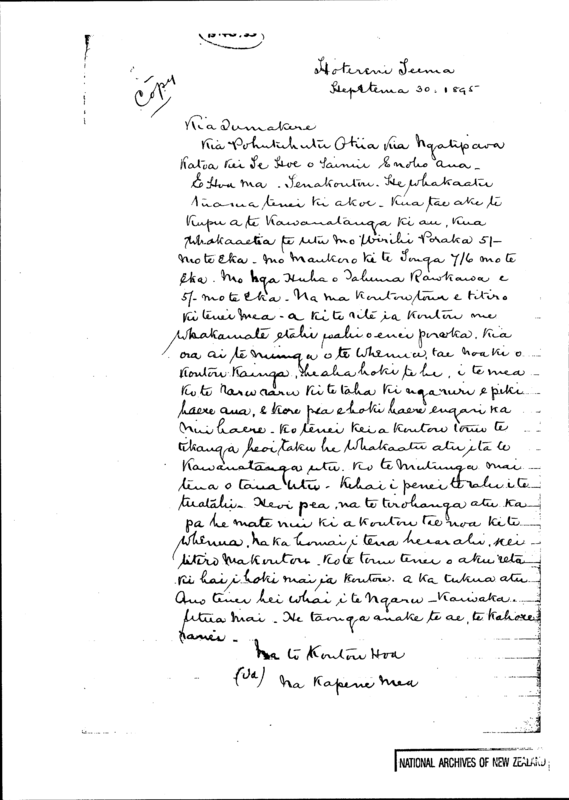 Copy
Hotereni Tuma
Heptema 30. 1895
Kia Tumakere
Kia Pohutuhutu Otiia Kia Ngatipaoa
Katoa Kei Te Hoe o Tainui E noho ana -
E Hoa ma. Tenakoutou. He whakaatu
tenei ki akoe - Kua tae ake te
Kupu a te Kawanatanga ki au, Kua
Whakaaetia te utu mo Wirihi Poraka 5/-
Mo te Eka - mo Maukoro ki te Tonga 7/6 mo te
Eka. Mo nga Huha o Tahuna Rawkawa e
5/- mo te Eka - Na ma Koutou tonu e titiro
Ki tenei mea - a ki te rite ia Koutou me
Whakamate etahi wahi o enei poraka. Kia
ora ai te nuinga o te Whenua, tae noa ki o
Koutou Kainga, he aha hoki te he, i te mea
Ko te raruraru ki te taha ki nga ruri e piki
haere ana, E kore pea e hoki haere engari ka
nui haere - Ko tenei kei a Koutou tonu te
tikanga heoi taku he Whakaatu atu i ta te
Kawanatanga utu. Ko te Mutunga mai
tena o taua Utu - Kihai i penei te rahi i te
tuatahi - Heoi pea, na te tirohanga atu Ka
pa he mate nui ki a Koutou tae noa ki te
Whenua, Na ka homai i tena hei
titiro Ma Koutou. Ko te toru tenei o aku reta
Ki hai i hoki mai ia Koutou. a ka tukua atu
Ano tenei hei whai i te Ngaru - Kaiwaka.
Utua Mai - He taonga anake te ae, te Kahore
ranei -
Na to Koutou Hoa
Na Kapene Mea
NATIONAL ARCHIVES OF NEW ZEALAND